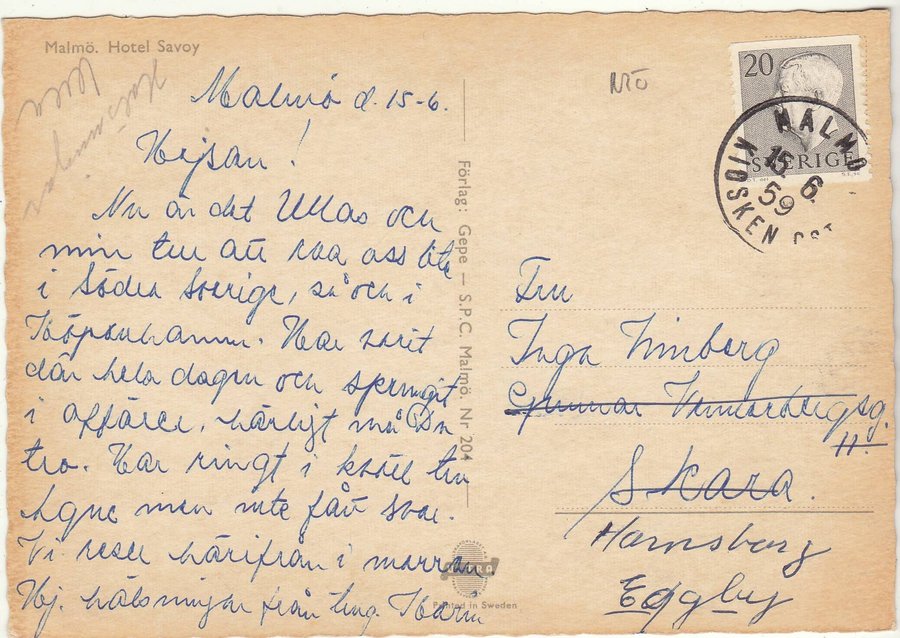 Malmö. Hotel Savoy
Malmö d. 15-6.
Hejsan!
Nu är det Ullas och
min tur att roa oss lite
i Södra Sverige, så och i
Köpenhamn. Har varit
där hela dagen och springit
i affärer, härligt må Du
tro. Har ringt i kväll till
men inte fått svar.
Vi reser härifrån i morron
Hej. hälsningar från Karin
Förlag: Gepe — S.P.C. Malmö. Nr 204
Printed in Sweden
20
SVERIGE
MALMÖ
15 6.
59
KIOSKEN
Fru
Inga Limberg
Gunnar Wennerbergsg.
11.
Skara.
Hornsborg
Eggby